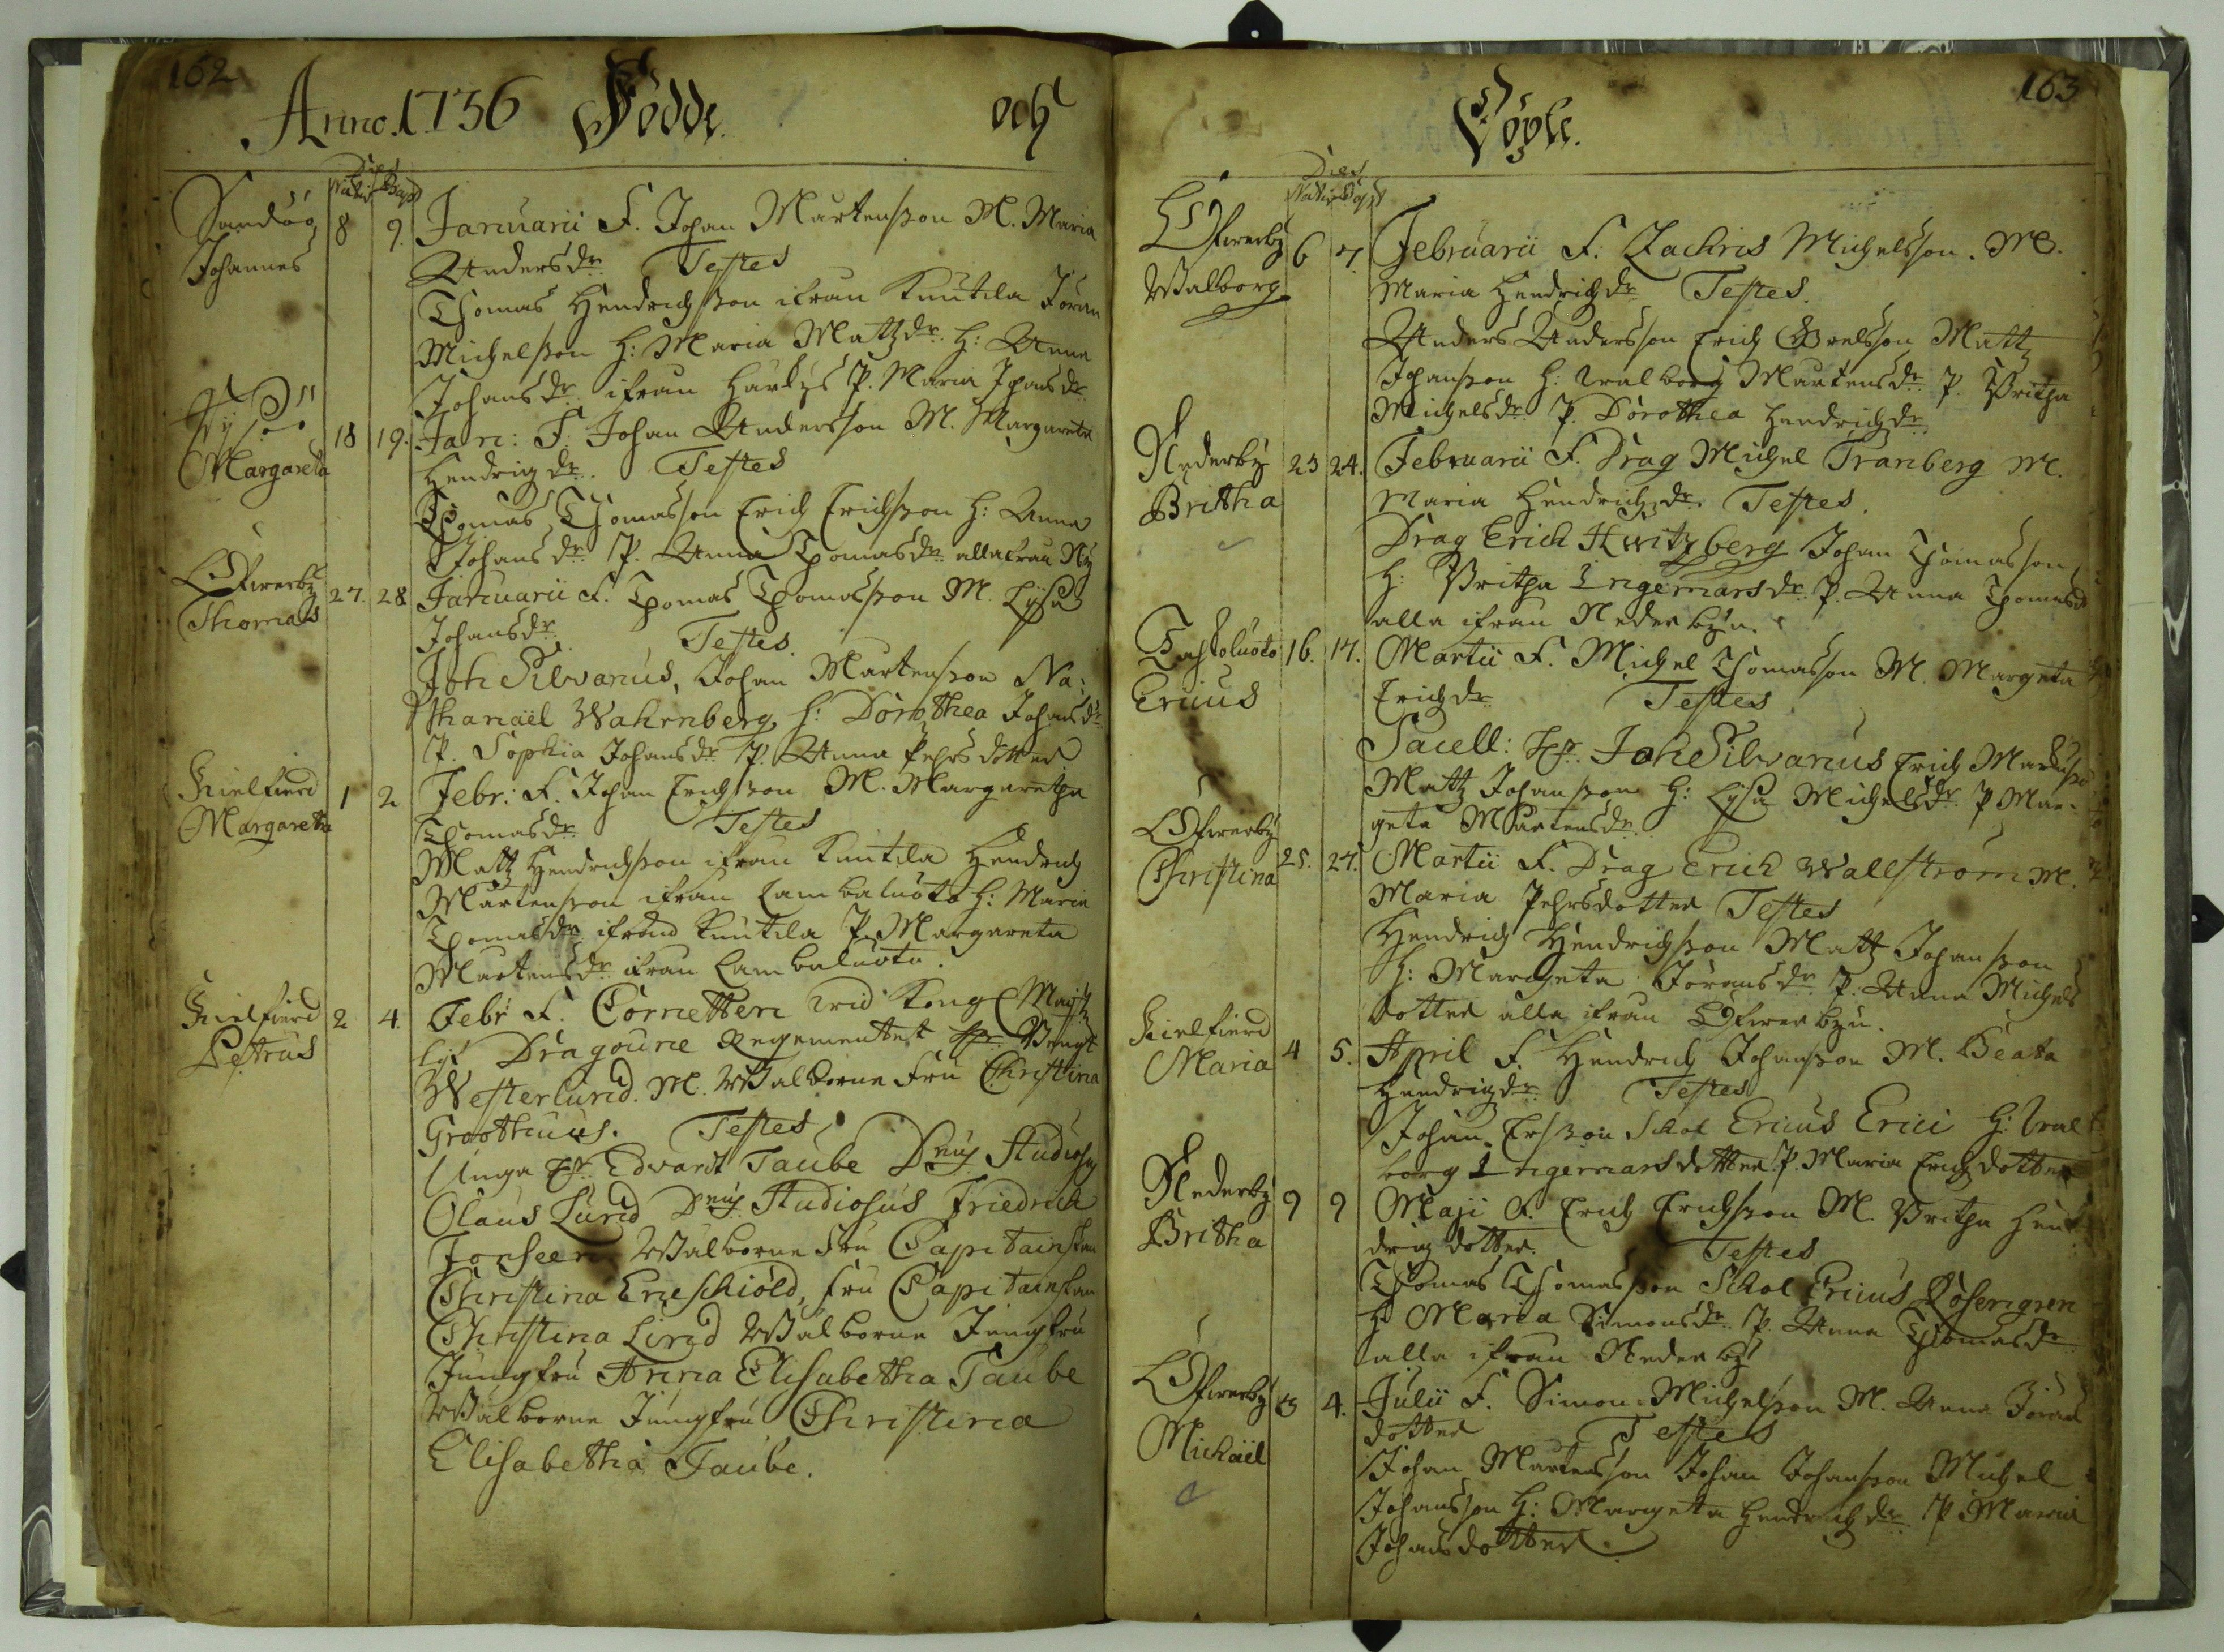 162
Anno. 1736 Födde. och
Dies
Nativ Bapt
Sandöö 8 9. Januarii F. Johan Martensson M. Maria
Johannes Andersdr. Testes
Thomas Hendrichsson ifrån Knutila Jöran
Michelsson H: Maria Mattzdr. H: Anna
Johansdr ifrån P. Maria Johansdr
18 19. Jan: F. Johan Andersson M. Margareta
Margareta Hendrigdr. Testes
Thomas Thomasson Erich Erichsson H: Anna
Johansdr P. Anna Thomasdr alla från
Öfwerby 27. 28 Januarii F. Thomas Thomasson M. Lysa
Thomas Johansdr. Testes.
Joh Silvanus, Johan Martensson Na:
thanaël Wahrnberg, H: Dorothea Johansdr
P. Sophia Johansdr P. Anna Pehrsdotter
Kielfierd 1 2 Febr: F. Johan Erichsson M. Margaretha
Margareta Thomasdr. Testes
Mattz Hendrichsson ifrån Knutila Hendrich
Martensson ifrån Lambaluoto H: Maria
Thomasdr ifrån Knutila P. Margareta
Martensdr ifrån Lambaluoto.
Kielfierd 2 4. Febr F. Cornetten wid Kongl Majtz
Petrus Lif Dragoune Regementet Hr. Bengt
Westerlund. M. Wälborne Fru Christina
Groothuus. Testes
Unga Hr. Edvardt Taube Dnus Studiosus
Olaus Lund Dnus Studiosus Friedrich
Jonseen Wälborne Fru Capitainskan
Christina Eneschiöld, Fru Capitainskan
Christina Lind Wälborne Jungfru
Jungfru Anna Elisabetha Taube
Wälborne Jungfru Christina
Elisabetha Taube.
163
Döpte.
Dies
Nativ Bapt
Öfwerby 6 7. Februarii F: Zachris Michelsson. M.
Walborg Maria Hendrichdr Testes.
Anders Andersson Erich Grelsson Mattz
Johansson H: Walborg Martensdr. P. Britha
Michelsdr P. Dorothea Hendrichdr.
Nederby 23 24. Februarii F. Drag Michel Tranberg M.
Britha Maria Hendrichzdr. Testes.
Drag Erich Kwitzberg Johan Thomasson,
H: Britha Ingemarsdr. P. Anna Thomasd
alla ifrån Nederbyn.
Tachtoluoto 16. 17. Martii F. Michel Thomasson M. Margeta
Ericus Erichdr. Testes
Sacell: Hr. Joh Silvanus Erich
Mattz Johansson H: Lysa Michelsdr. P. Mar-
geta Martensdr.
Öfwerby 25. 27. Martii F. Drag Erich Wallström M.
Christina Maria Pehrsdotter Testes
Hendrich Hendrichsson Mattz Johansson
H: Margeta Jöransdr. P. Anna Michels
dotter alla ifrån Öfwerbyn.
Kielfierd 4 5. April F. Hendrich Johansson M. Beata
Maria Hendrigdr. Testes
Johan Ersson Schol Ericus Erici H: Wal
borg Ingemarsdotter P. Maria Erigdotter
Nederby 9 9 Maji F. Erich Erichsson M. Britha Hen
Britha drigdotter. Testes
Thomas Thomasson Schol Ericus Rosengren
H: Maria Simonsdr. P. Anna Thomasdr
alla ifrån Nederby
Öfwerby 3 4. Julii F. Simon Michelsson M. Anna Jörans
Michaël dotter Testes
Johan Martensson Johan Johansson Michel
Johansson H: Margeta Hendrichdr P. Maria
Johansdotter.